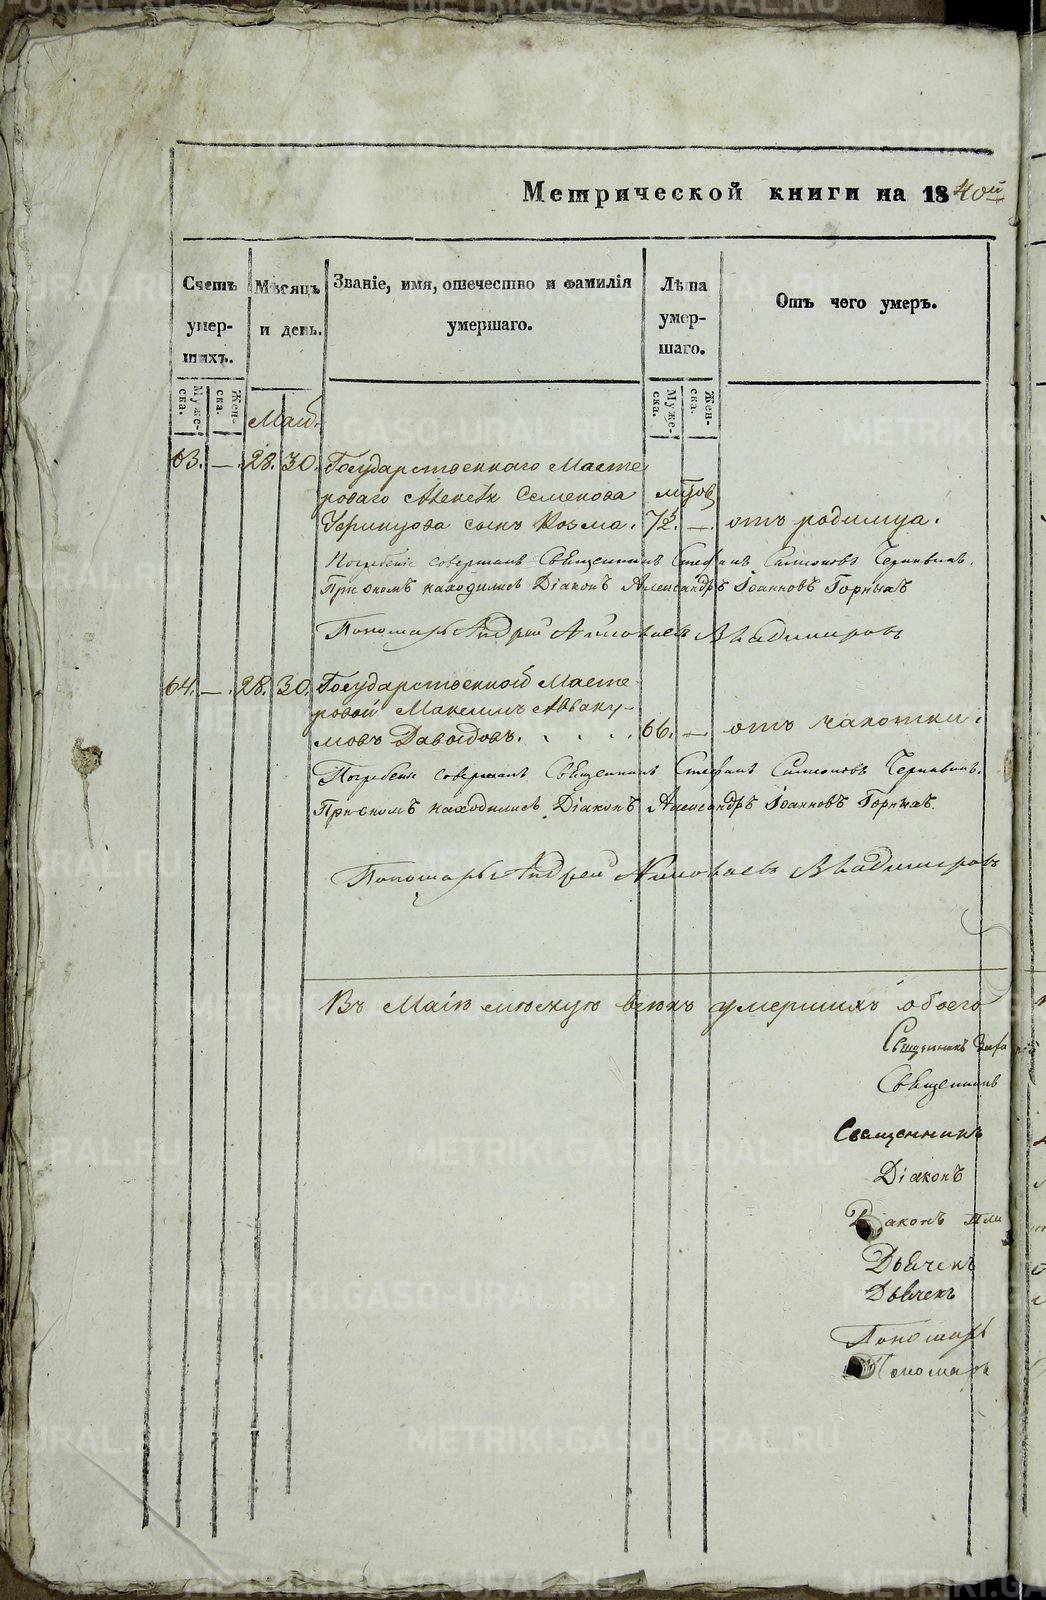 Метрической книги на 1840ой
Счетъ умер-шихъ.
Мѣсяцъ и день.
Званіе, имя, отечество и фамилія умершаго.
Лѣта умер-шаго.
Отъ чего умеръ.
Муже-ска.
Жен-ска.
Муже-ска.
Жен-ска.
Маій.
63. — 28. 30. Государственнаго Масте
роваго Алексѣя Семенова
сынъ Козма. — отъ родимца.
Погребеніе совершалъ Священникъ Стефанъ Симоновъ
При ономъ находились Діаконъ Александръ Іоанновъ Горныхъ
Пономарь Андрей Владимировъ
64. — 28. 30. Государственной Масте
ровой Максимъ Авваку-
мовъ Давыдовъ. . . . . 66. — отъ чахотки.
Погребеніе совершалъ Священникъ Стефанъ Симоновъ
При ономъ находились Діаконъ Александръ Іоанновъ Горныхъ.
Пономарь Андрей Владимировъ
Въ Маіѣ мѣсяцѣ всѣхъ умершихъ обоего
Священникъ
Священникъ
Священникъ
Діаконъ
Діаконъ
Дьячекъ
Дьячекъ
Пономарь
Пономарь
METRIKI.GASO-URAL.RU